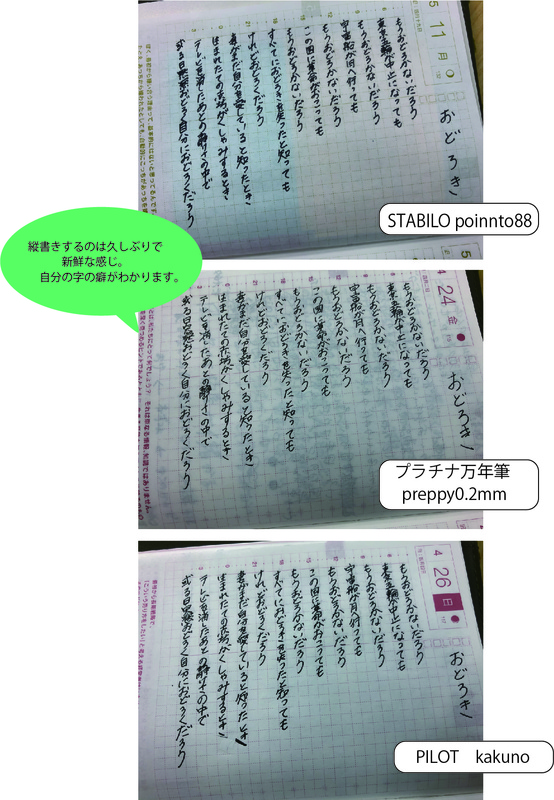 5
11
月
おどろき
もうおどろかないだろう
東京五輪が中止になっても
もうおどろかないだろう
宇宙船が月へ行っても
もうおどろかないだろう
この国に革命がおこっても
もうおどろかないだろう
すべてにおどろきを失ったと知っても
けれどおどろくだろう
妻がまだ自分を愛していると知ったとき
生まれたての赤坊がくしゃみするとき
テレビを消したあとの静けさの中で
或る日突然おどろく自分におどろくだろう
STABILO poinnto88
縦書きするのは久しぶりで
新鮮な感じ。
自分の字の癖がわかります。
4
24
金
おどろき
もうおどろかないだろう
東京五輪が中止になっても
もうおどろかないだろう
宇宙船が月へ行っても
もうおどろかないだろう
この国に革命がおこっても
もうおどろかないだろう
すべてにおどろきを失ったと知っても
けれどおどろくだろう
妻がまだ自分を愛していると知ったとき
生まれたての赤坊がくしゃみするとき
テレビを消したあとの静けさの中で
或る日突然おどろく自分におどろくだろう
プラチナ万年筆
preppy0.2mm
4
26
日
おどろき
もうおどろかないだろう
東京五輪が中止になっても
もうおどろかないだろう
宇宙船が月へ行っても
もうおどろかないだろう
この国に革命がおこっても
もうおどろかないだろう
すべてにおどろきを失ったと知っても
けれどおどろくだろう
妻がまだ自分を愛していると知ったとき
生まれたての赤坊がくしゃみするとき
テレビを消したあとの静けさの中で
或る日突然おどろく自分におどろくだろう
PILOT kakuno